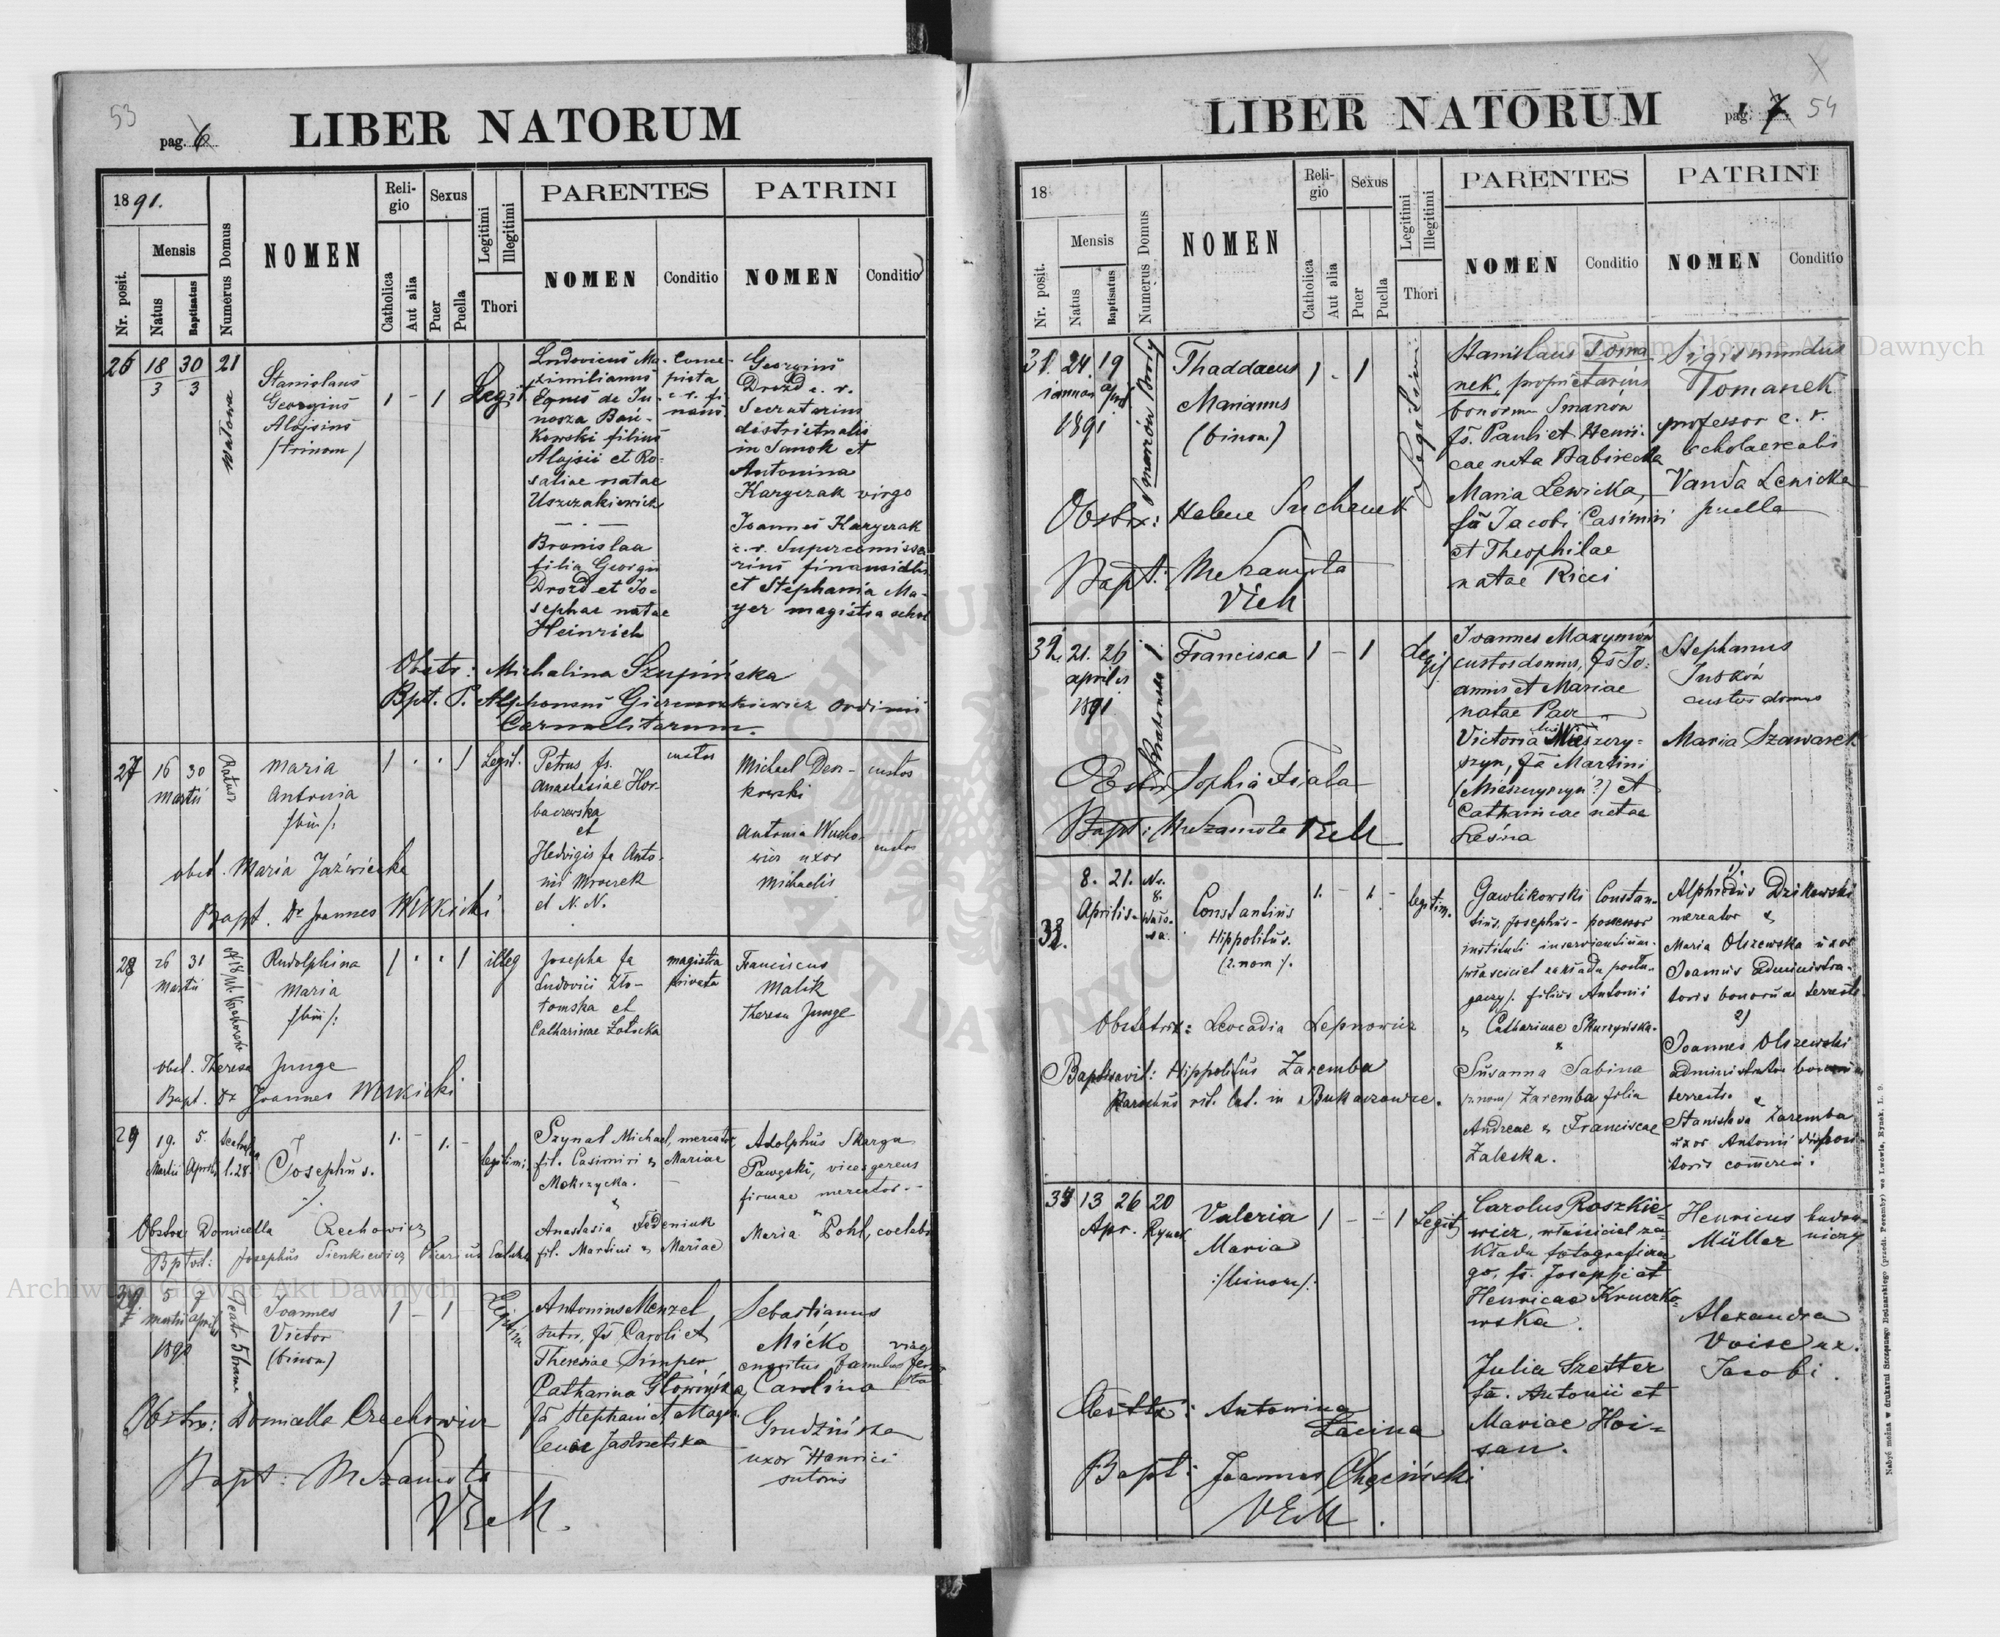 53
pag. 6
LIBER NATORUM
1891.
Mensis
Nr. posit.
Natus
Baptisatus
Numerus Domus
NOMEN
Religio
Catholica
Aut alia
Sexus
Puer
Puella
Legitimi
Illegitimi
Thori
PARENTES
NOMEN
Conditio
PATRINI
NOMEN
Conditio
26
18/3
30/3
21
Watowa
Stanislaus
Georgius
Alojsius
/trinom/
1 - 1
Legit.
Ludovicus Ma-
ximilianus
Eques de Ju-
nosza Bań-
kowski filius
Alojsii et Ro-
saliae natae
Uszczakiewicz
Bronislaa
filia Georgii
Drozd et Jo-
sephae natae
Heinrich
Conci-
pista
c. r. fi-
nans.
Georgius
Drozd c. r.
Secretarius
districtualis
in Sanok et
Antonina
Karyczak virgo
Joannes Karyczak
c. r. Supercomissa
rius
et Stephania Ma-
yer magistra schol
Obstr: Michalina Szupińska
Bpt. P. Alphonsus Ordinis
Carmelitarum.
27
16 30
Martii
Ratusz
Maria
Antonia
/bin/:
1 . . 1
Legit.
Petrus fs.
Anastasiae Hor-
baczewska
et
Hedvigis fa Anto-
nii Mroczek
et N. N.
custos
Michael Den-
kowski
custos
Antonia
uxor
Michaelis
custos
obst. Maria Jaźwiecka
Bapt. Dr Joannes
28
26 31
Martii
Rudolphina
Maria
/bin/:
1 . . 1
illeg
Josepha fa
Ludovici Zło-
tomska et
Catharinae
magistra
privata
Franciscus
Malik
Theresa Junge
obst. Theresa Junge
Bapt. Dr Joannes
29
19. 5.
Martii Aprilis
l. 28
Josephus.
1. - 1. -
legitim.
Szynal Michael, mercator,
fil. Casimiri & Mariae
Mokrzycka.
&
Anastasia Fedeniuk
fil. Martini & Mariae
Adolphus Skarga
Pawęski, vicesgerens
firmae mercator.
&
Maria Pohl, coelebs
Obstrix Domicella Czechowicz
Bptvt: Josephus Sienkiewicz Vicarius
5 7
Martii aprilis
Joannes
Victor
(binom)
1 - 1
Legitim
Antonius Menzel
sutor, fs Caroli et
Theresiae Simper
Catharina Głowińska
fa Stephani et Magda
lenae Jastrzebska
Sebastianus
Mićko
famulus
Carolina
Grudzińska
uxor Henrici
sutoris
Obstrx: Domicella Czechowicz
Bapt: M Szamota
VEcM.
54
pag. 7
LIBER NATORUM
18
Mensis
Nr. posit.
Natus
Baptisatus
Numerus Domus
NOMEN
Religio
Catholica
Aut alia
Sexus
Puer
Puella
Legitimi
Illegitimi
Thori
PARENTES
NOMEN
Conditio
PATRINI
NOMEN
Conditio
31. 24. 19
1891
Thaddaeus
Marianus
(binom.)
1 - 1
Legitim
Stanislaus Toma
nek, proprietarius
bonorum Smarzów
fs. Pauli et Henri-
cae neta Babirecka
Maria Lewicka,
fa Jacobi, Casimiri
et Theophilae
natae Ricci
Sigismundus
Tomanek
professor c. r.
scholae realis
Vanda Lewicka
puella
Obstrx: Helene Suchanek
Bapt: M Szamota
VEcM
32. 21. 26
aprilis
1891
Francisca
1 - 1
Legit
Joannes Maxymów
custos domus, fs Jo-
annis et Mariae
natae
Victoria Mieszczy-
szyn, fa Martini
et
Catharinae natae
Leśna
Stephanus
Juśków
custos domus
Maria Szawarek
Obstr: Sophia Fiala
Bapt: M Szamota VEcM
33.
8. 21.
Aprilis
Nr.
8.
Constantius
Hippolitus.
(2. nom).
1. - 1. -
legitim.
Gawlikowski Constan-
tius, Josephus - possessor
instituti inservientium.
/właściciel zakładu posłu-
gaczy/. filius Antonii
& Catharinae Skurzyńska.
&
Susanna Sabina
/2. nom/ Zaremba filia
Andreae & Franciscae
Zaleska.
1).
Alphredus Dzikowski
mercator &
Maria Olszewska uxor
Joannis administra-
toris bonorum terrestr.
2)
Joannes Olszewski
administrator bonorum
terrestr. &
Stanislava Zaremba
uxor Antonii disposi-
toris comercii.
Obstetrix: Leocadia Lepnowicz
Baptisavit: Hippolitus Zaremba
Parochus rit. lat. in Bukaczowce.
34 13 26 20
Apr. Rynek
Valeria
Maria
:/binom/:
1 - - 1
Legit
Carolus Roszkie-
wicz, właściciel za-
kładu fotograficzne
go, fs. Josephi et
Henricae Kruczko-
wska.
Julia Szetter
fa. Antonii et
Mariae Hoi-
san.
Henricus
Müller
budow-
niczy
Alexandra
Voise ux.
Jacobi.
Obsttx: Antonina
Łacina
Bapt: Joannes Chęciński
VEcM.
Nabyć można w drukarni Szczęsnego Bednarskiego (przeds. Poremby) we Lwowie, Rynek, L. 9.
Archiwum Główne Akt Dawnych
Archiwum Główne Akt Dawnych
ARCHIWUM GŁÓWNE AKT DAWNYCH